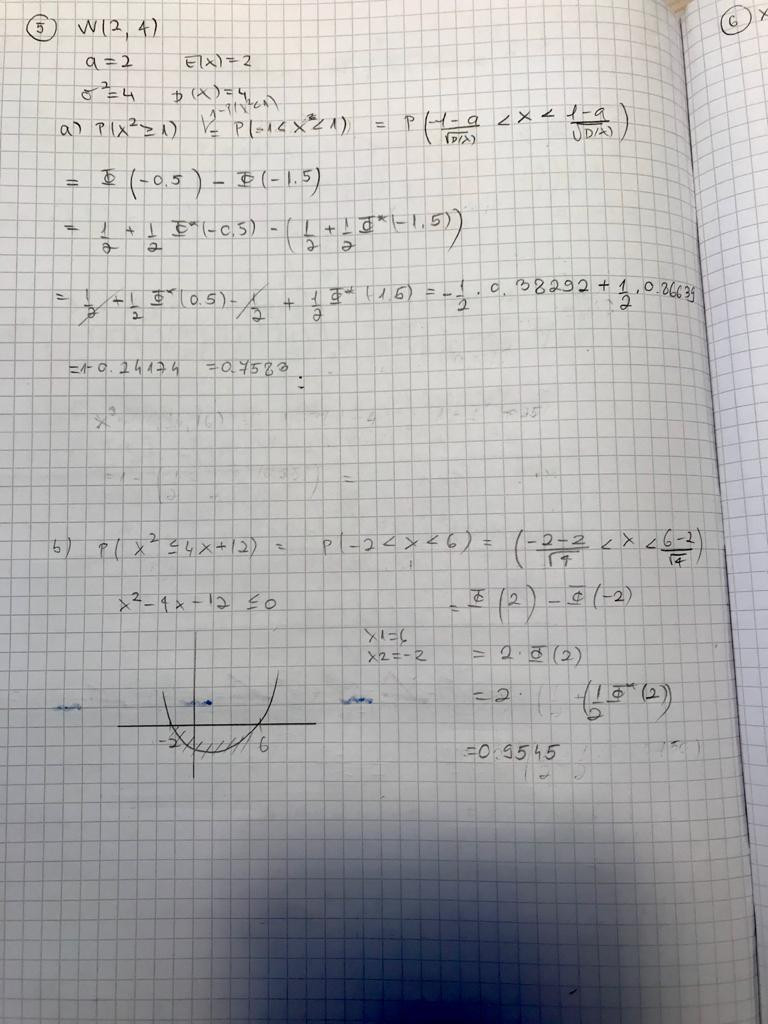 ⑤ N(2, 4)
a=2 E(x)=2
σ²=4 D(x)=4
1-P(x²<1)
a) P(x²≥1) = P(-1<x<1) = P(-1-a/√D(x) < x < 1-a/√D(x))
= Φ(-0.5) - Φ(-1.5)
= 1/2 + 1/2 Φ*(-0.5) - (1/2 + 1/2 Φ*(-1.5))
= 1/2 + 1/2 Φ*(0.5) - 1/2 + 1/2 Φ*(1.5) = -1/2 · 0.38292 + 1/2 · 0.86639
=1-0.24174 =0.7583
b) P(x²≤4x+12) = P(-2<x<6) = (-2-2/√4 < x < 6-2/√4)
x²-4x-12 ≤0
= Φ(2) - Φ(-2)
x1=6
x2=-2
= 2·Φ(2)
= 2· (1/2 Φ*(2))
-2 6
=0.9545
⑥ x